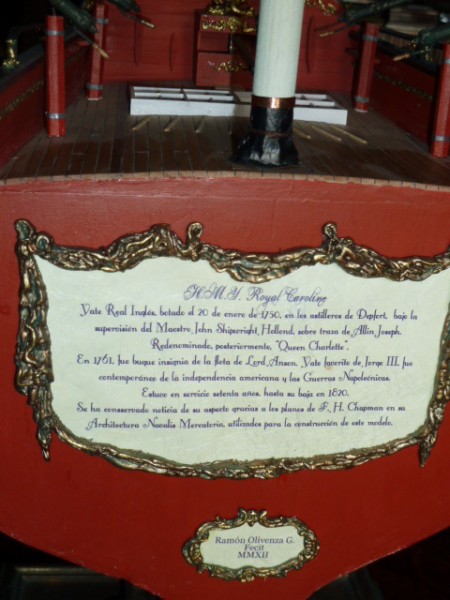 H.M.Y. Royal Caroline
Yate Real Inglés, botado el 20 de enero de 1750, en los astilleros de Depfort, bajo la
supervisión del Maestro John Shipwright, Hollend, sobre traza de Allin Joseph.
Redenominado, posteriormente, "Queen Charlotte".
En 1761, fue buque insignia de la flota de Lord Anson. Yate favorito de Jorge III, fue
contemporáneo de la independencia americana y las Guerras Napoleónicas.
Estuvo en servicio setenta años, hasta su baja en 1820.
Se ha conservado noticia de su aspecto gracias a los planos de F. H. Chapman en su
Architectura Navalis Mercatoria, utilizados para la construcción de este modelo.
Ramón Olivenza G.
Fecit
MMXII